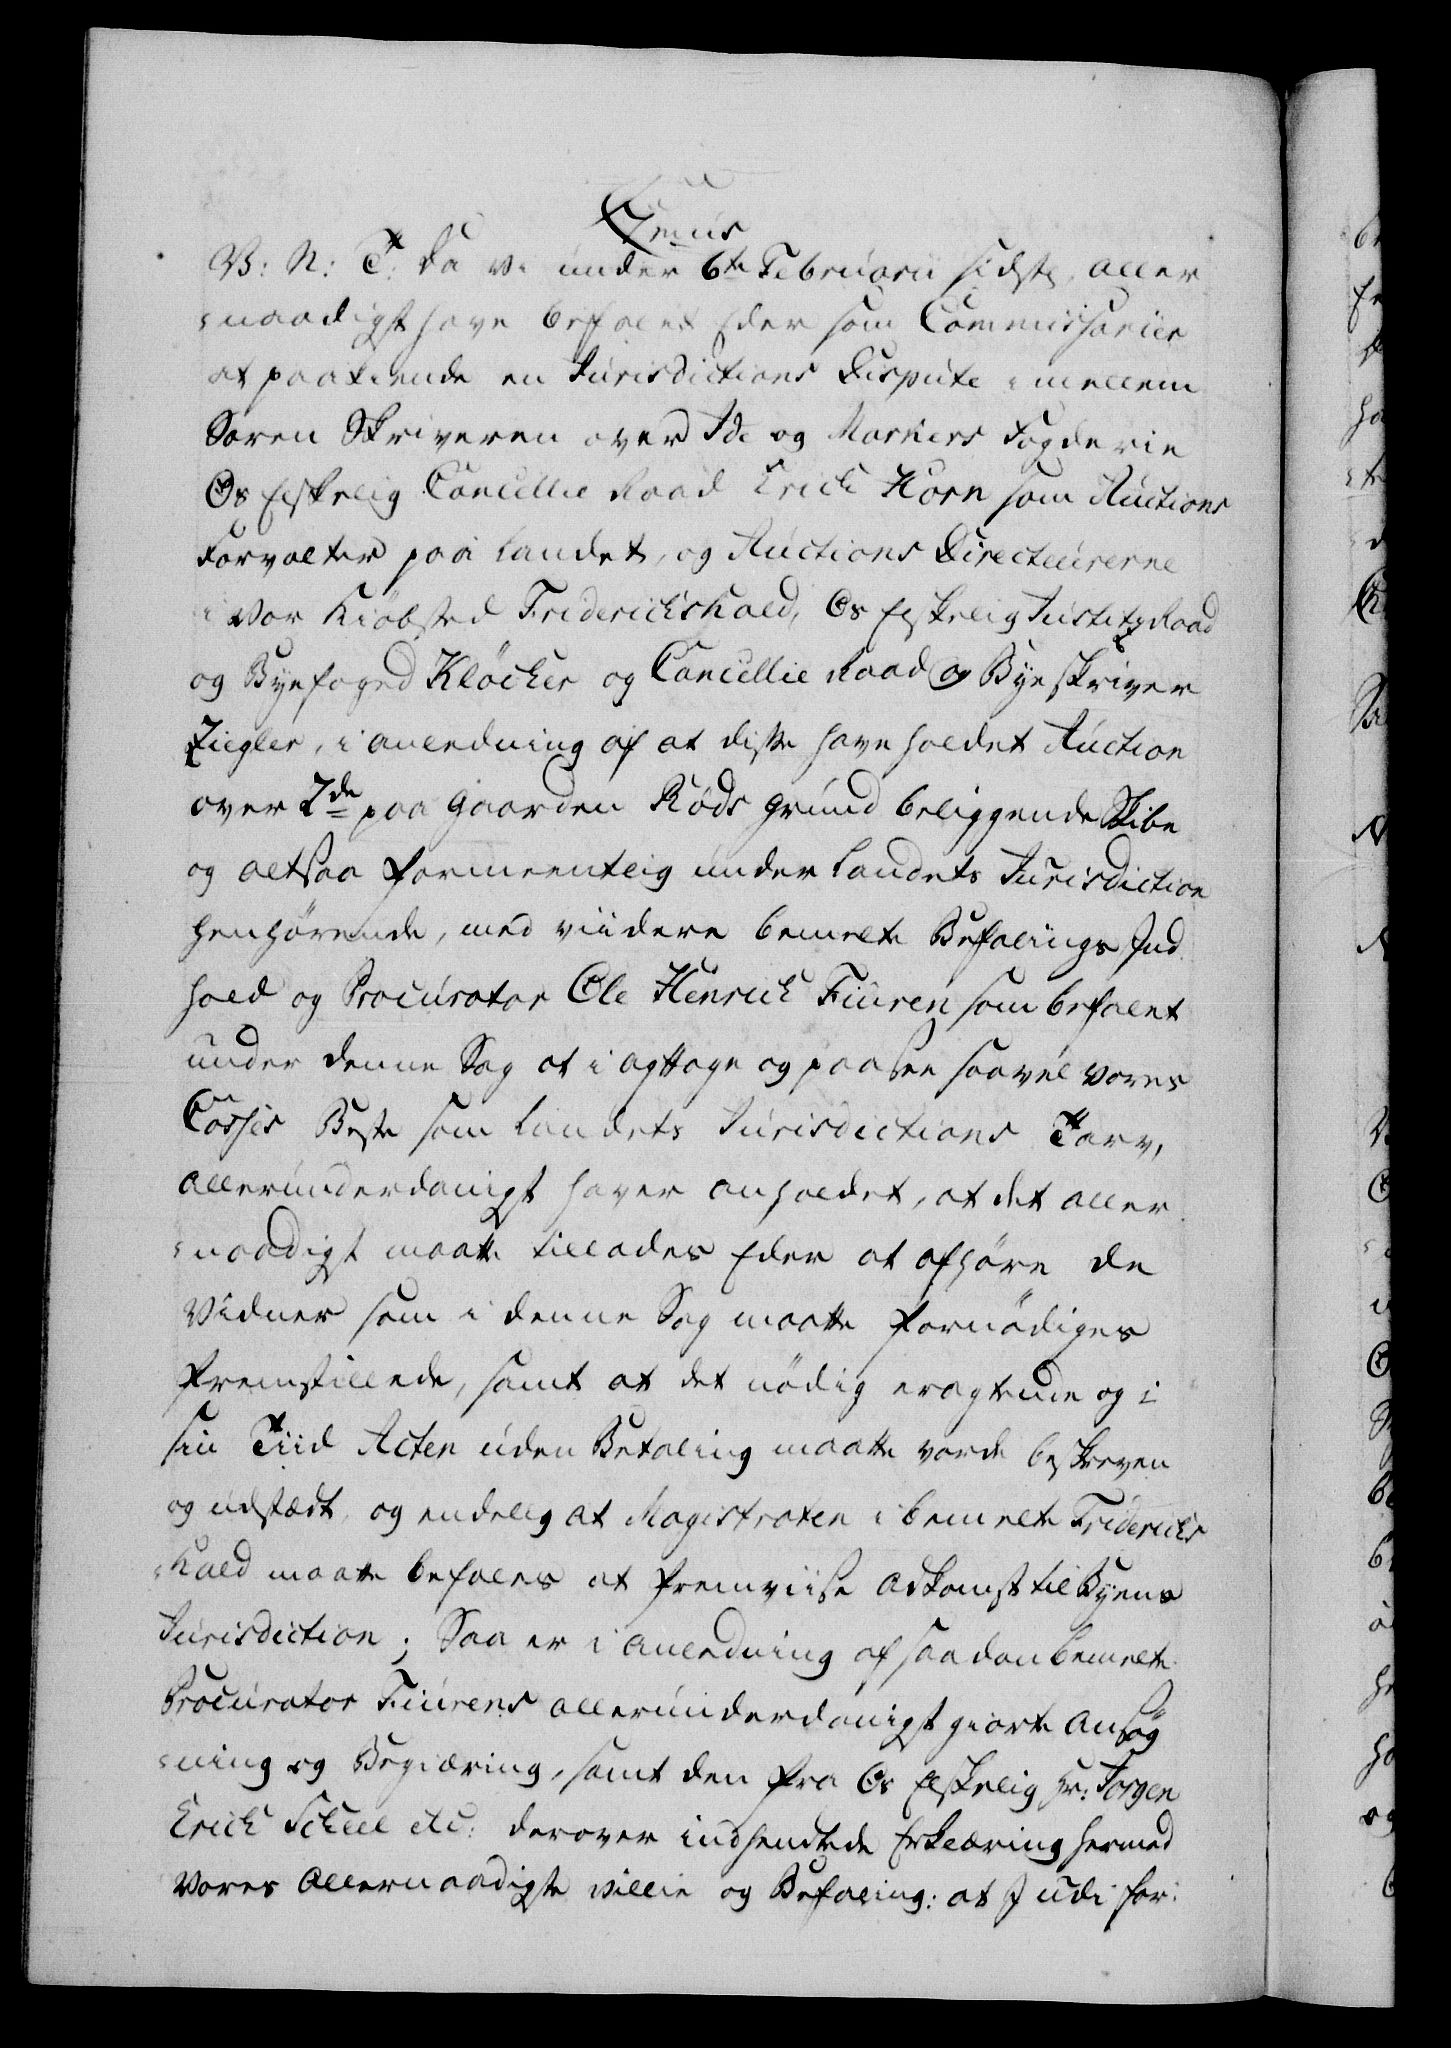 V: N: T: da vi under 6te Februarii sidste, aller
naadigst have befalet Eder som Commissarier
at paakiende en Jurisdictions Dispute imellem
Soren Skriveren over Ide og Markers Fogderie
Os Elskelig Cancellie Raad Erich Horn som Auctions
Forvalter paa Landet, og Auctions Directeurerne
i Vor Kiöbsted Friderichshald, Os Elskelig Justitz Raad
og Byefoged Klöcker og Cancellie Raad og Byeskriver
Ziegler, i anledning af at disse have holdet Auction
over 2de paa Gaarden Röds Grund beliggende Skibe
og altsaa formeentlig under Landets Jurisdiction
henhörende, med viidere bemelte Befalings Ind
hold og Procurator Ole Henrich Fiuren som befalet
under denne Sag at iagttage og paasee saavel vores
Casses Beste som Landets Jurisdictions Tarv,
allerunderdanigst haver anholdet, at det aller
naadigst maatte tillades Eder at afhöre de
Vidner som i denne Sag maatte fornödiges
fremstillede, samt at det nödig eragtende og i
sin Tiid Acten uden Betaling maatte vorde beskreven
og udstædt, og endelig at Magistraten i bemelte Friderichs
hald maatte befales at fremviise Adkomst til Byens
Jurisdiction; Saa er i anledning af saadan bemelte
Procurator Fiurens allerunderdanigst giorte Ansög
ning og Begiæring, samt den fra Os Elskelig Hr: Jorgen
Erich Scheel etc: derover indhendtede Erklæring hermed
Vores Allernaadigste villie og Befaling: at I udi for: